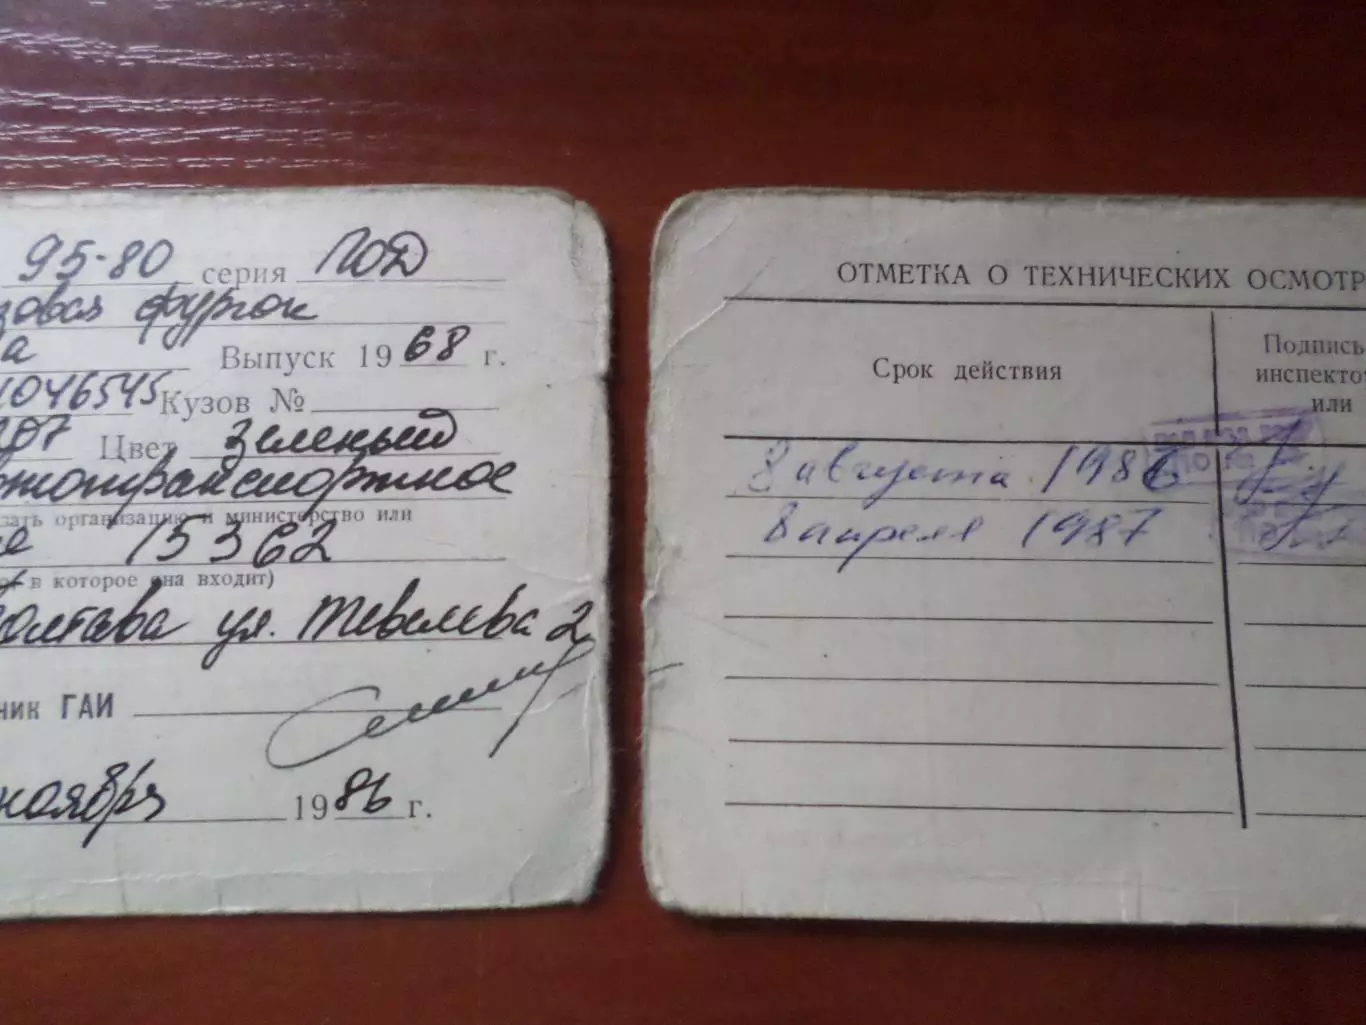 95-80 серия ПОД
зовая фургон
а Выпуск 1968 г.
1046545 Кузов №
207 Цвет зеленый
тотранспортное
зать организацию и министерство или
е 15362
в которое она входит)
олтава ул. Тевелева 2
ник ГАИ
ноября 1986 г.
ОТМЕТКА О ТЕХНИЧЕСКИХ ОСМОТР
Срок действия
Подпись
инспекто
или
8 августа 1986
8 апреля 1987